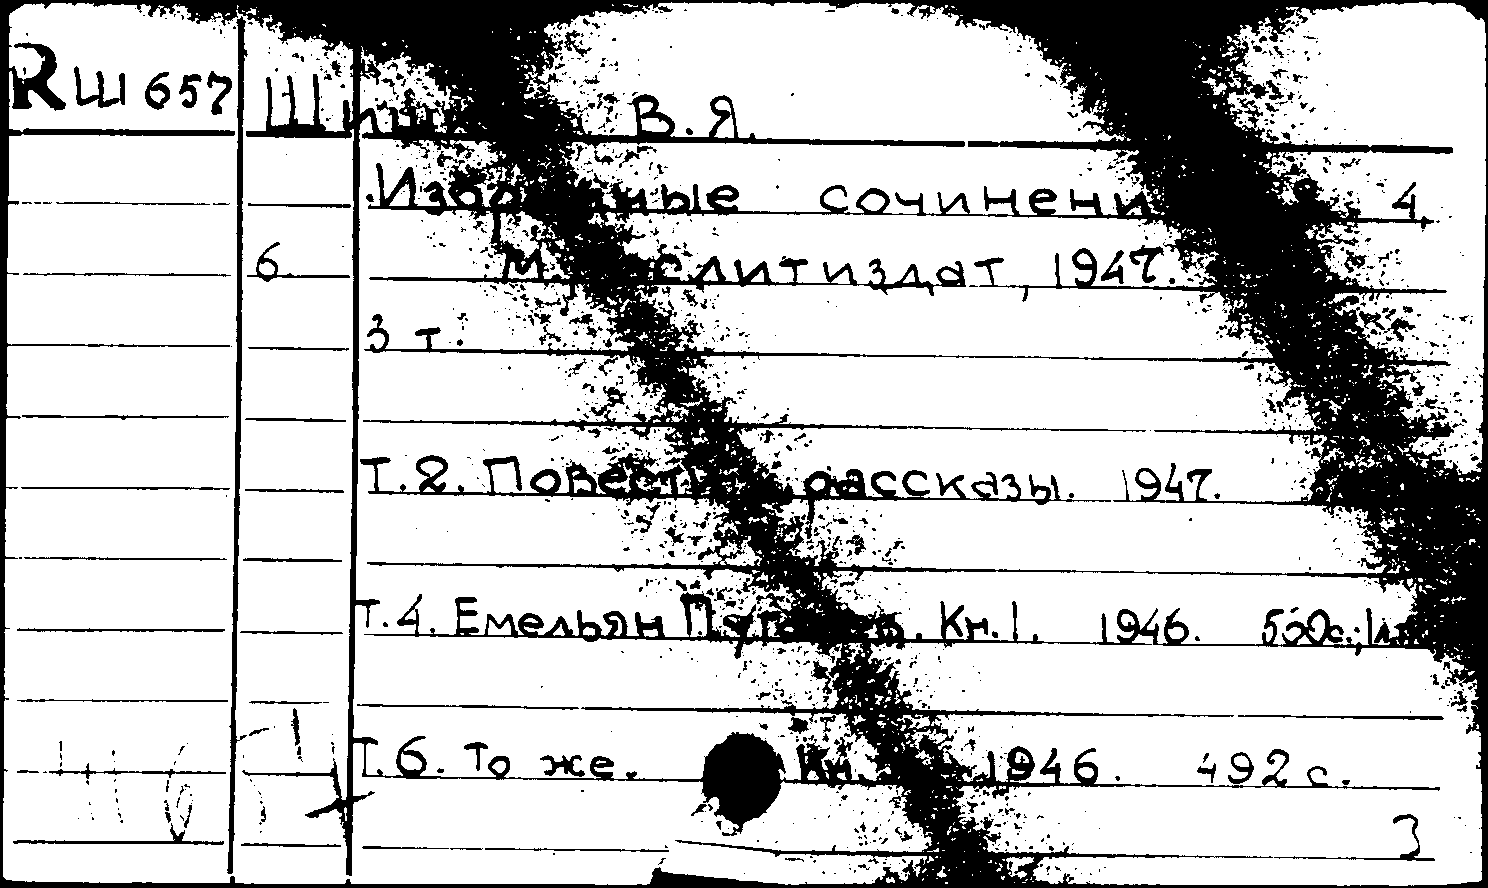 RШ657 Шишков В.Я.
Избранные сочинения 4,
6 М., Гослитиздат, 1947.
3 т.
Т.2. Повести и рассказы. 1947.
Т.4. Емельян Пугачев. Кн.1. 1946. 550с.;1л.
Т.6. То же. Кн. 1946. 492с.
3